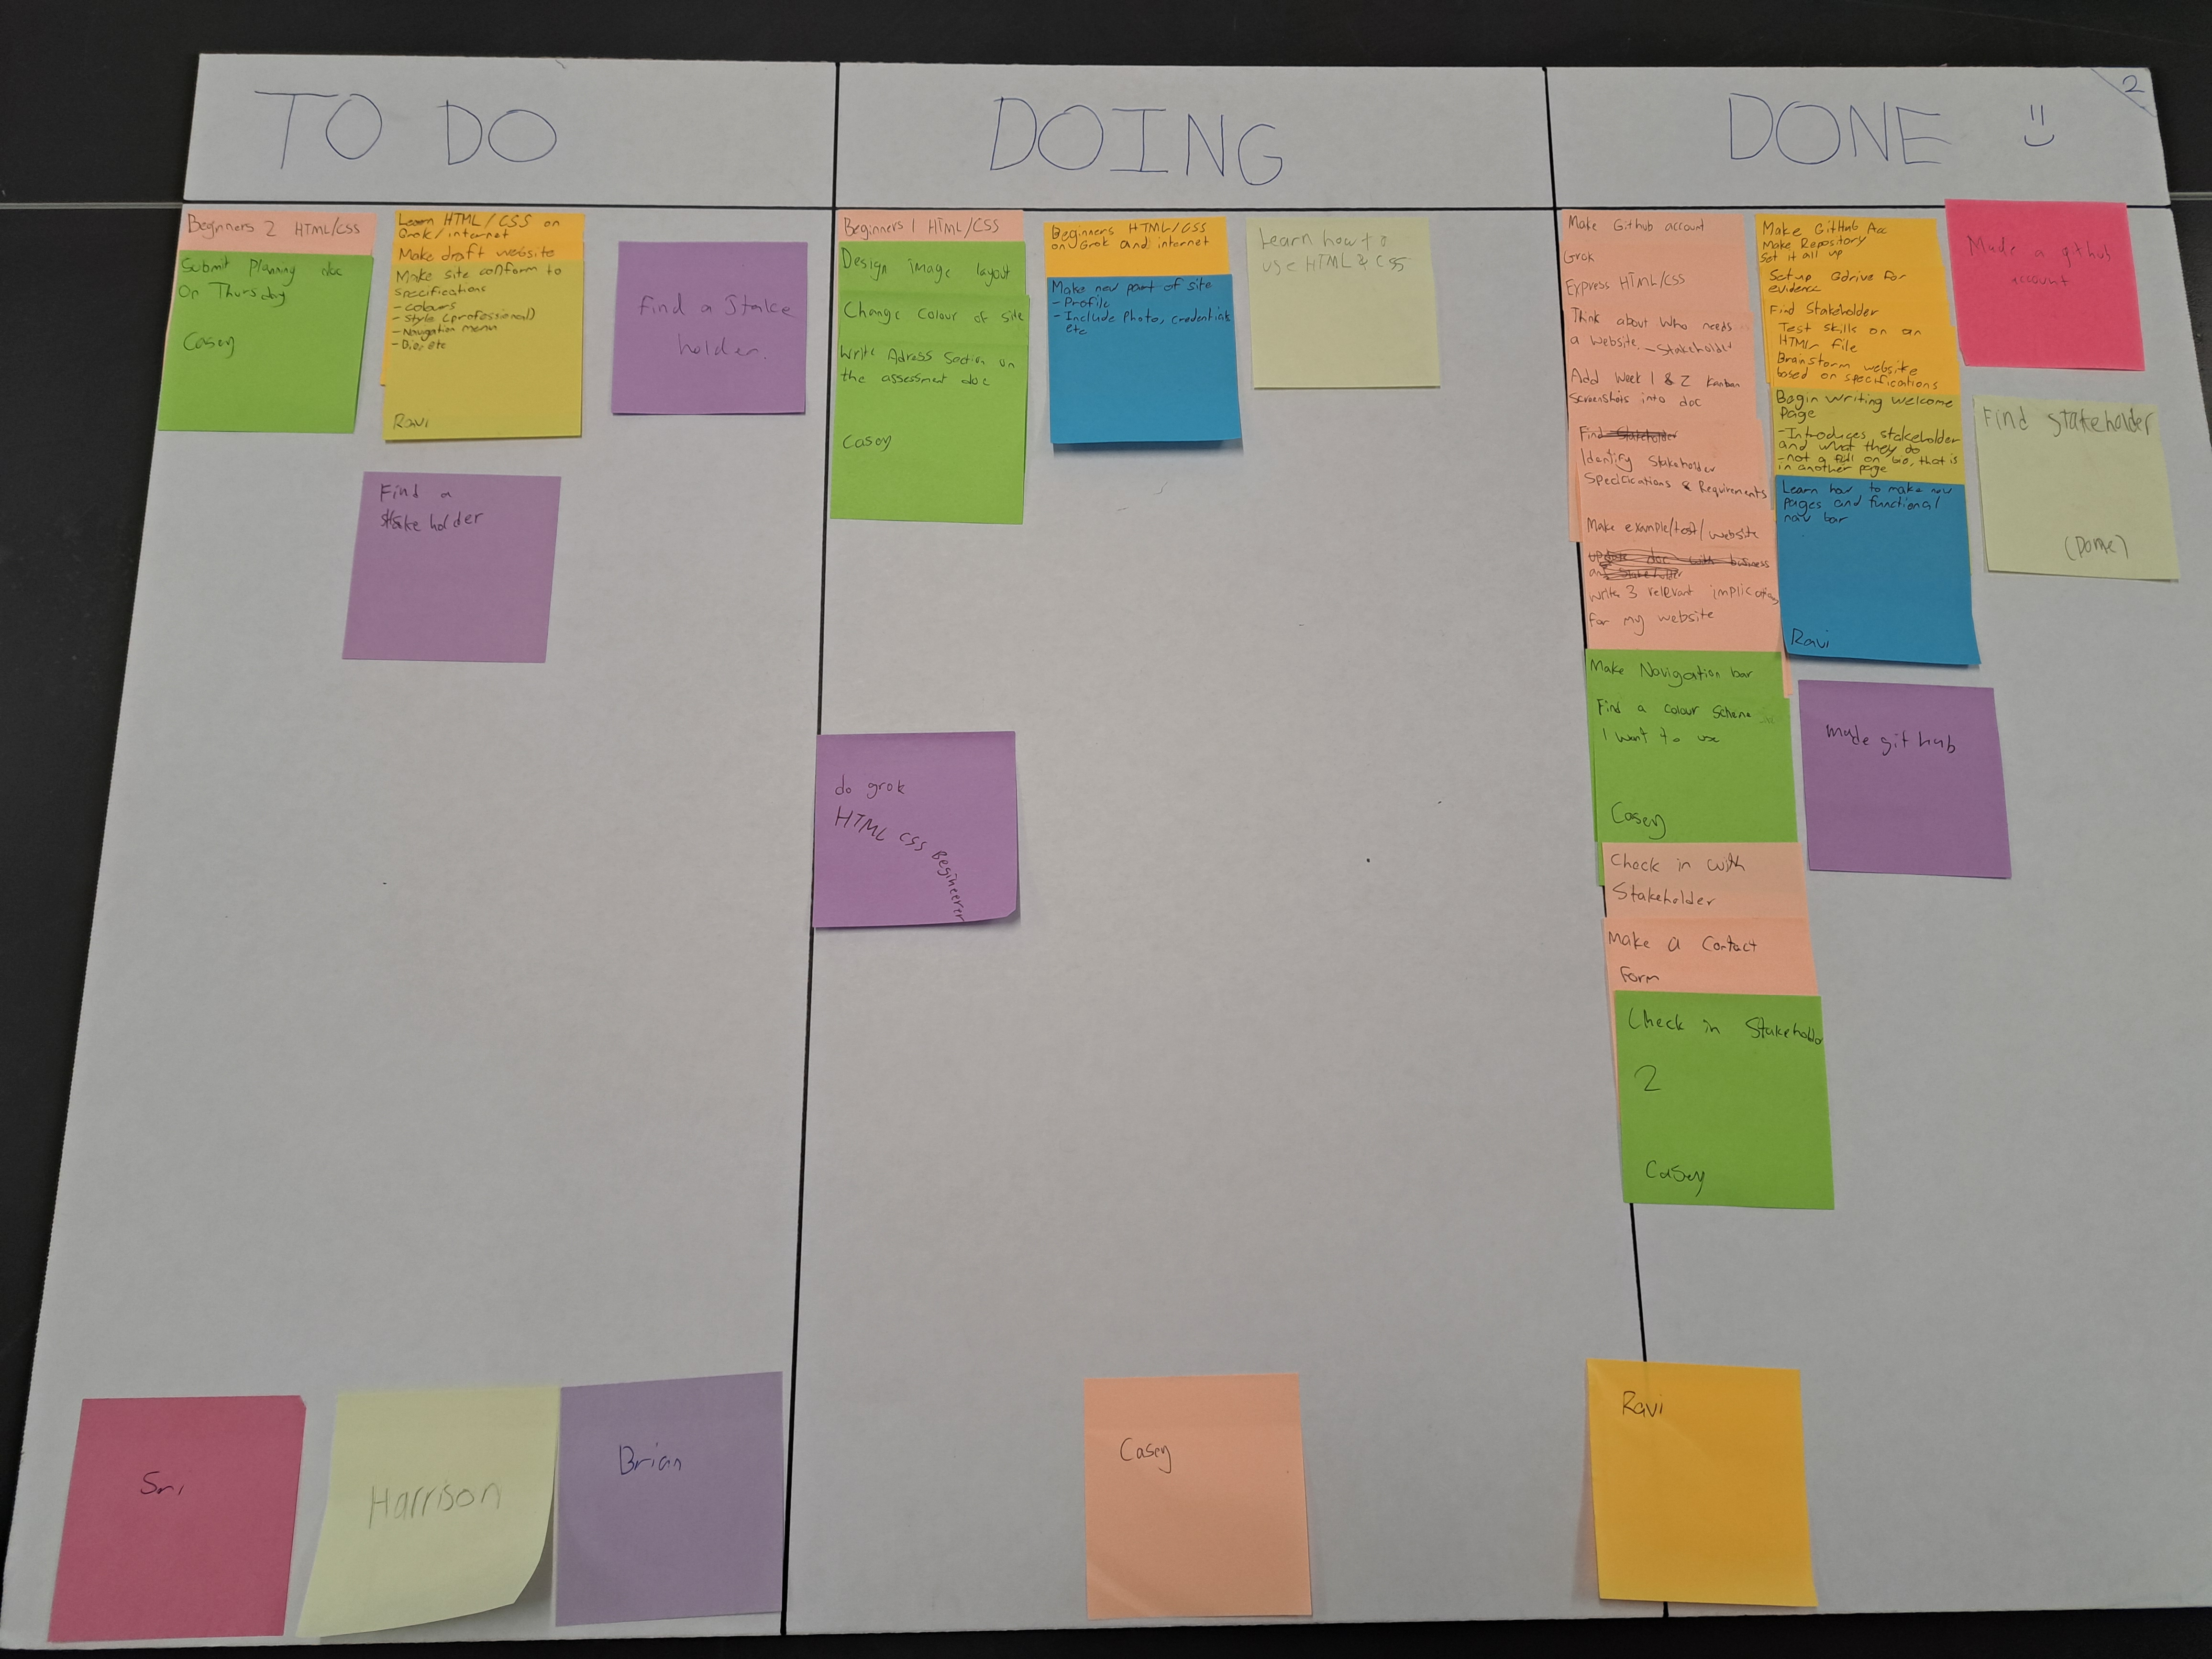 TO DO
Beginners 2 HTML/CSS
Submit planning doc
on Thursday
Casey
Learn HTML/CSS on
Grok/internet
Make draft website
Make site conform to
specifications
- colours
- Style (professional)
- Navigation menu
Ravi
find a Stake
holder.
Find a
stake holder
Sri
Harrison
Brian
DOING
Beginners 1 HTML/CSS
Design image layout
Change Colour of site
Write Adress Section on
the assessment doc
Casey
Beginners HTML/CSS
on Grok and internet
Make new part of site
- Profile
- Include photo, credentials
etc
Learn how to
use HTML & CSS
do grok
HTML CSS Begineerer
Casey
DONE :)
2
Make Github account
Grok
Express HTML/CSS
Think about who needs
a website - Stakeholder
Add Week 1 & 2 Kanban
screenshots into doc
Find Stakeholder
Identify Stakeholder
Specifications & Requirements
Make example/test/website
write 3 relevant implications
for my website
Make Navigation bar
Find a colour scheme
I want to use
Casey
Check in with
Stakeholder
Make a Contact
form
Check in Stakeholder
2
Casey
Make GitHub Acc
Make Repository
Set it all up
Setup Gdrive for
evidence
Find Stakeholder
Test skills on an
HTML file
Brainstorm website
based on specifications
Begin writing welcome
page
- Introduces stakeholder
and what they do
- not a full on bio, that is
in another page
Learn how to make new
pages and functional
nav bar
Ravi
Made a github
account
Find stakeholder
(Done)
made git hub
Ravi